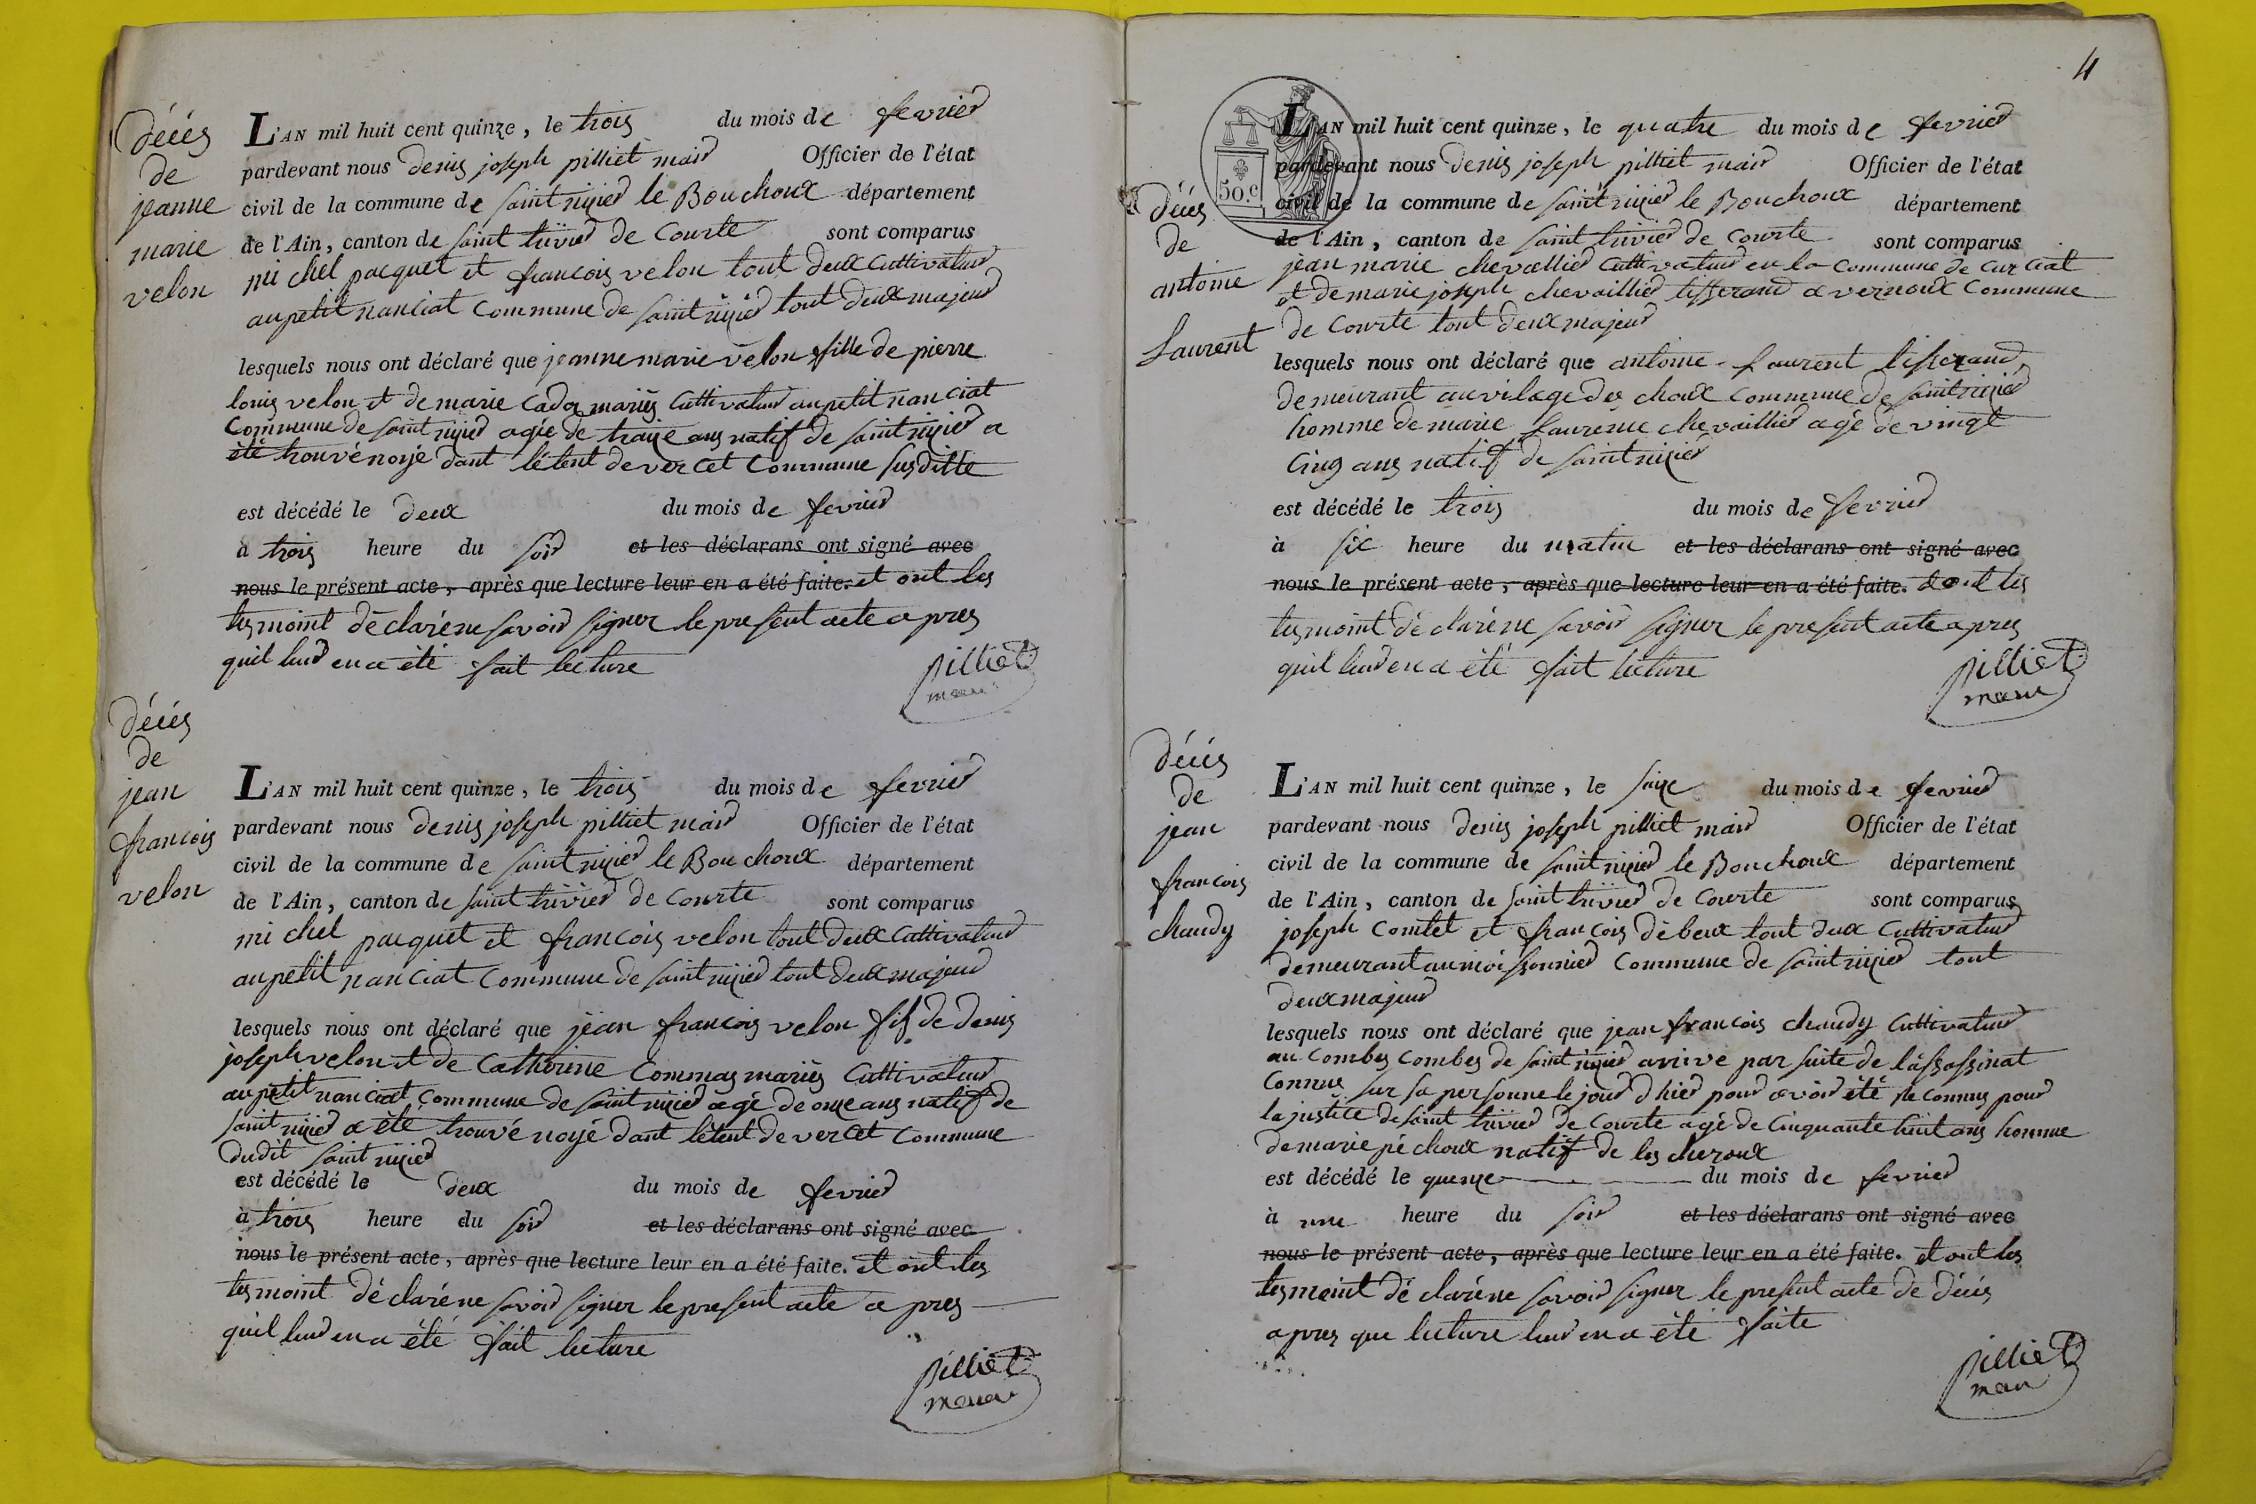 Décés
de
jeanne
marie
velon
L'AN mil huit cent quinze, le trois du mois de fevrier
pardevant nous denis joseph pilliet mair Officier de l'état
civil de la commune de saint nizier le Bouchoux département
de l'Ain, canton de saint trivier de Courte sont comparus
mi chel pacquet et francois velon tout deux Cultivateur
au petit nanciat Commune de saint nizier tout deux majeur
lesquels nous ont déclaré que jeanne marie velon fille de pierre
louis velon et de marie Cadoz mariés Cultivateur au petit nanciat
Commune de saint nizier agée de traize ans natif de saint nizier a
été trouvé noyé dant l'étent de vercet Commune susditte
est décédé le deux du mois de fevrier
à trois heure du soir et les déclarans ont signé avec
nous le présent acte, après que lecture leur en a été faite. et ont les
tesmoint déclaré ne savoir signer le present acte apres
quil leur en a été fait lecture
pilliet
maire
Décés
de
jean
francois
velon
L'AN mil huit cent quinze, le trois du mois de fevrier
pardevant nous denis joseph pilliet mair Officier de l'état
civil de la commune de saint nizier le Bouchoux département
de l'Ain, canton de saint trivier de Courte sont comparus
mi chel pacquet et francois velon tout deux Cultivateur
au petit nanciat Commune de saint nizier tout deux majeur
lesquels nous ont déclaré que jean francois velon fils de denis
joseph velon et de Catherine Commas mariés Cultivateur
au petit nanciat Commune de saint nizier agé de onze ans natif de
saint nizier a été trouvé noyé dant l'étent de vercet Commune
dudit saint nizier
est décédé le deux du mois de fevrier
à trois heure du soir et les déclarans ont signé avec
nous le présent acte, après que lecture leur en a été faite. et ont les
tesmoint déclaré ne savoir signer le present acte a pres
quil leur en a été fait lecture
pilliet
maire
4
50.c
Décés
de
antoine
Laurent
L'AN mil huit cent quinze, le quatre du mois de fevrier
pardevant nous denis joseph pilliet mair Officier de l'état
civil de la commune de saint nizier le Bouchoux département
de l'Ain, canton de saint trivier de Courte sont comparus
jean marie chevallier Cultivateur en la Commune de Curciat
et de marie joseph chevaillier tisserand a vernoux Commune
de Courte tout deux majeur
lesquels nous ont déclaré que antoine Laurent tisserand
demeurant au vilage des choux Commune de saint nizier
homme de marie Laurence chevaillier agé de vingt
Cinq ans natif de saint nizier
est décédé le trois du mois de fevrier
à six heure du matin et les déclarans ont signé avec
nous le présent acte, après que lecture leur en a été faite. et ont les
tesmoint déclaré ne savoir signer le present acte apres
quil leur en a été fait lecture
pilliet
maire
Décés
de
jean
francois
chaudy
L'AN mil huit cent quinze, le saize du mois de fevrier
pardevant nous denis joseph pilliet mair Officier de l'état
civil de la commune de saint nizier le Bouchoux département
de l'Ain, canton de saint trivier de Courte sont comparus
joseph Comtet et francois débeux tout deux Cultivateur
demeurant au moissonnier Commune de saint nizier tout
deux majeur
lesquels nous ont déclaré que jean francois chaudy Cultivateur
au Combes Combes de saint nizier arrive par suite de l'assassinat
Connus sur sa personne le jour d'hier pour avoir été reconnus pour
la justice de saint trivier de Courte agé de Cinquante huit ans homme
de marie péchoux natif de les cheroux
est décédé le quenze du mois de fevrier
à une heure du soir et les déclarans ont signé avec
nous le présent acte, après que lecture leur en a été faite. et ont les
tesmoint déclaré ne savoir signer le present acte de décés
apres que lecture leur en a été faite
pilliet
maire